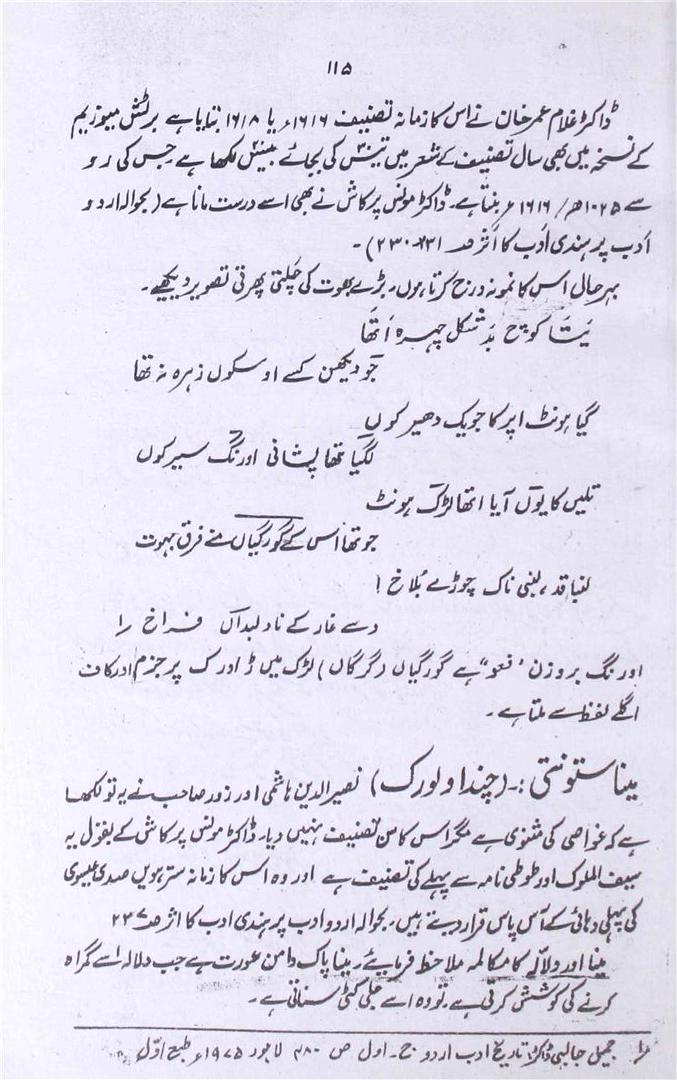 ۱۱۵
ڈاکٹر غلام عمر خان نے اس کا زمانہ تصنیف ۱۶۱۶ء یا ۱۶۱۸ بتایا ہے برٹش میوزیم
کے نسخہ میں بھی سال تصنیف کے شعر میں تیس کی بجائے بیس لکھا ہے جس کی رو
سے ۱۰۲۵ھ/ ۱۶۱۶ء بنتا ہے۔ ڈاکٹر مونس پرکاش نے بھی اسے درست مانا ہے (بحوالہ اردو
ادب پر ہندی ادب کا اثر صہ ۲۳۱-۲۳۰)۔
بہر حال اس کا نمونہ درج کرتا ہوں۔ بڑے بھوت کی چلتی پھرتی تصویر دیکھیے۔
یتا کوچ بد شکل چہرہ اتھا
جو دیکھن کسے اوسکوں زہرہ نہ تھا
گیا ہونٹ اپر کا جو یک دھیر کوں
لگیا تھا پشانی اورنگ سیر کوں
تلیں کا یوں آیا اتھا لڑک ہونٹ
جو تھا اس کے گورگیاں منے فرق بہوت
لنبا قد، لنبی ناک چوڑے بلاخ
دسے غار کے ناد لبداں فراخ ؎۱
اورنگ بروزن "فعو" ہے گورگیاں (گرگاں) لڑک میں ڑ اور ک پر جزم اور کاف
اگلے لفظ سے ملتا ہے۔
مینا ستونتی:۔ (چندا و لورک) نصیر الدین ہاشمی اور زور صاحب نے یہ تو لکھا
ہے کہ غواصی کی مثنوی ہے مگر اس کا سن تصنیف نہیں دیا۔ ڈاکٹر مونس پرکاش کے بقول یہ
سیف الملوک اور طوطی نامہ سے پہلے کی تصنیف ہے اور وہ اس کا زمانہ سترہویں صدی عیسوی
کی پہلی دہائی کے آس پاس قرار دیتے ہیں۔ بحوالہ اردو ادب پر ہندی ادب کا اثر صہ ۲۳۷
مینا اور دلالہ کا مکالمہ ملاحظہ فرمایئے، مینا پاک دامن عورت ہے جب دلالہ اسے گمراہ
کرنے کی کوشش کرتی ہے۔ تو وہ اسے جلی کٹی سناتی ہے۔
؎۱ جمیل جالبی ڈاکٹر: تاریخ ادب اردو ج۔ اول ص ۴۸۰ لاہور ۱۹۷۵ء طبع اول